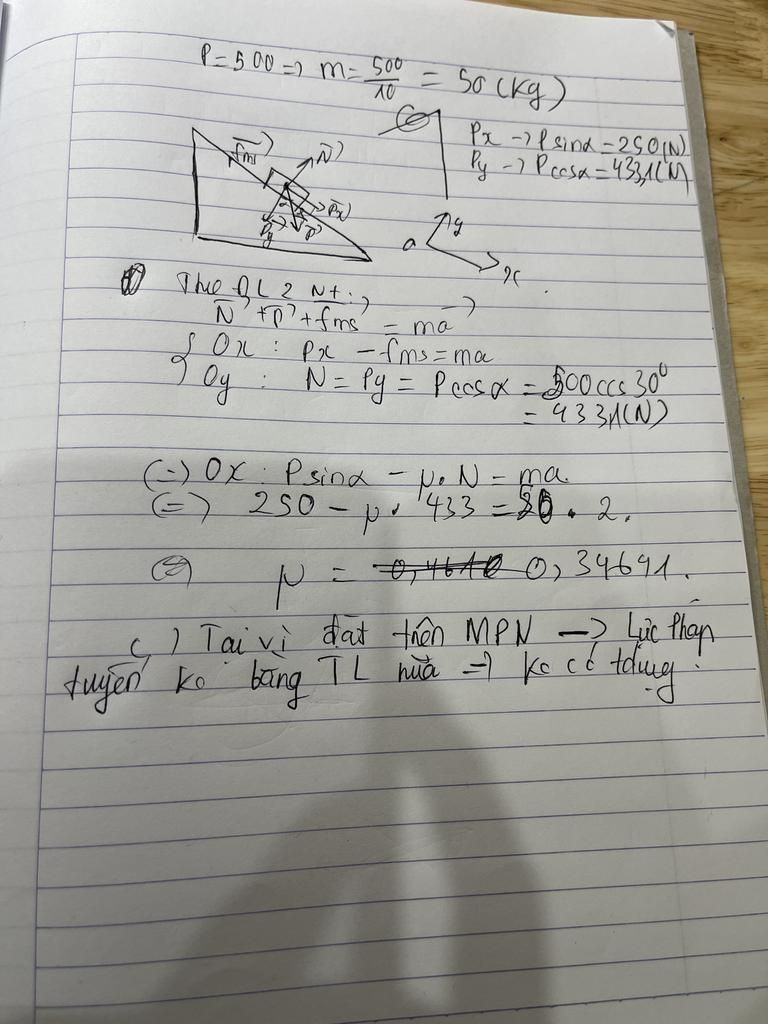 P = 500 => m = 500/10 = 50 (kg)
Px -> P sinα = 250 (N)
Py -> P cosα = 433,1 (N)
fms N
Px
Py P
y
o
x
Theo ĐL 2 Nt:
N + P + fms = ma
Ox : Px - fms = ma
Oy : N = Py = P cosα = 500 cos 30⁰
= 433,1 (N)
(=) Ox : P sinα - μ. N = ma.
(=) 250 - μ. 433 = 50 . 2.
μ = 0,34641.
c, ) Tại vì đặt trên MPN —> Lực Pháp
tuyến ko bằng TL nữa => ko có tdụng.